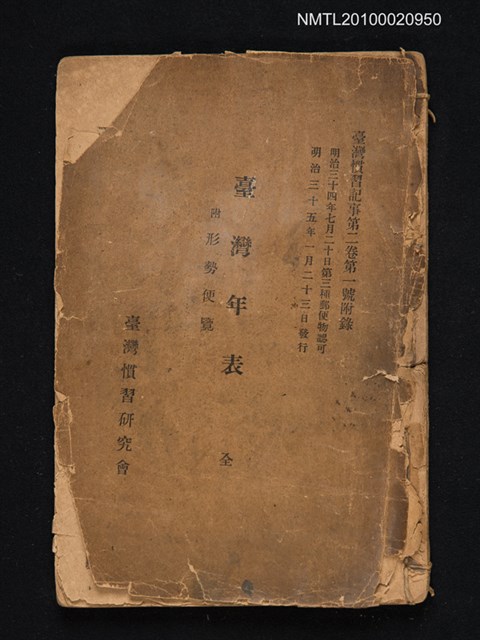 NMTL20100020950
臺灣慣習記事第二卷第一號附錄
明治三十四年七月二十日第三種郵便物認可
明治三十五年一月二十三日發行
臺灣年表 全
附形勢便覽
臺灣慣習研究會